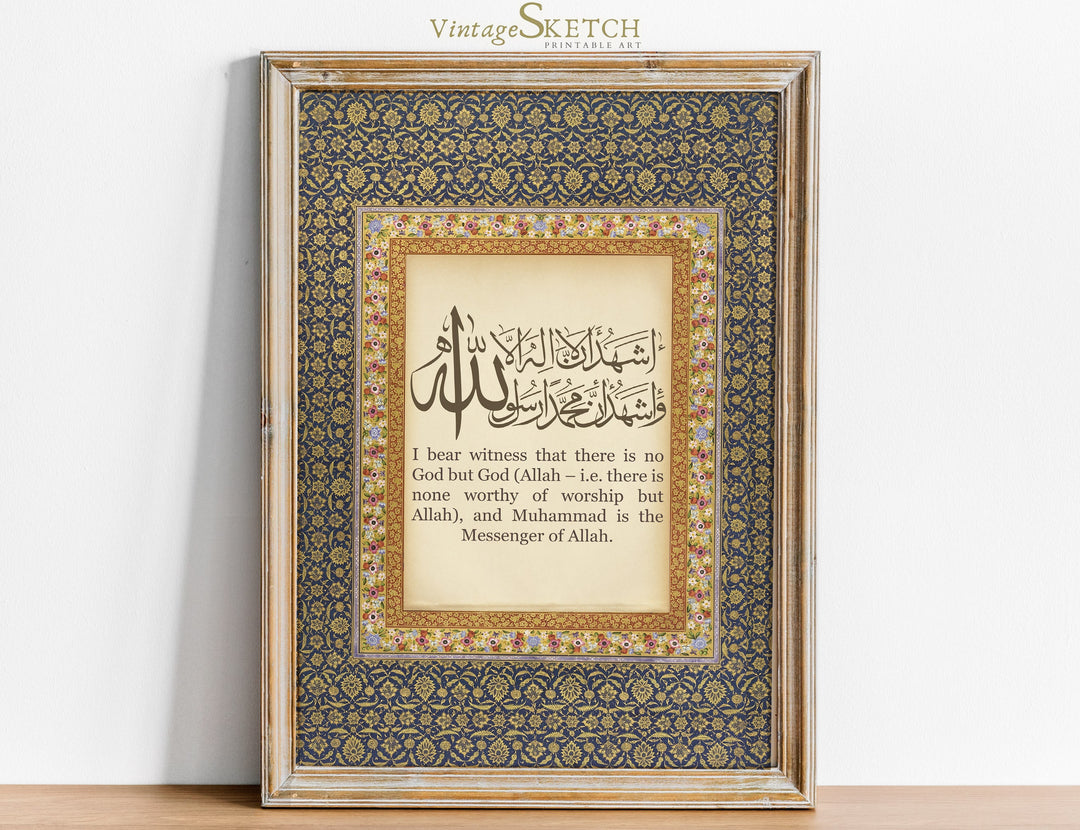 VintageSKETCH
PRINTABLE ART
أشهد أن لا إله إلا الله
وأشهد أن محمدا رسول الله
I bear witness that there is no
God but God (Allah – i.e. there is
none worthy of worship but
Allah), and Muhammad is the
Messenger of Allah.